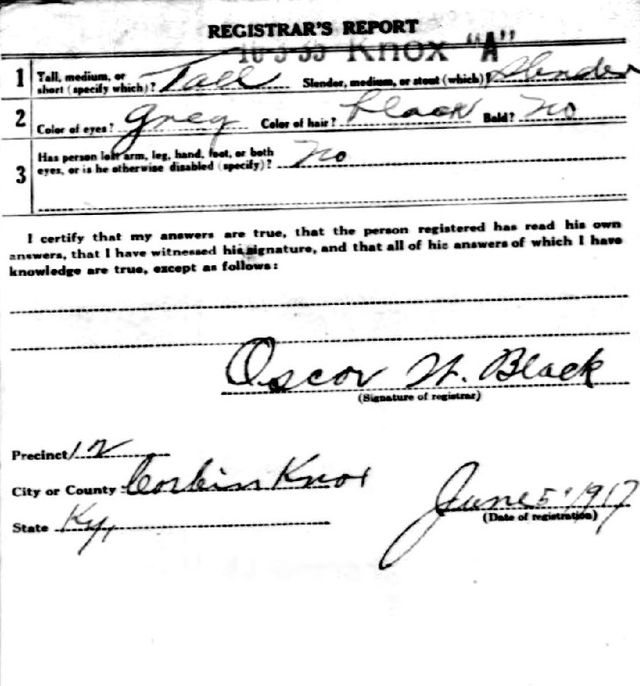 REGISTRAR'S REPORT
16-3-35 Knox "A"
1 Tall, medium, or short (specify which)? Tall Slender, medium, or stout (which)? Slender
2 Color of eyes? Grey Color of hair? black Bald? No
3 Has person lost arm, leg, hand, foot, or both
eyes, or is he otherwise disabled (specify)? No
I certify that my answers are true, that the person registered has read his own
answers, that I have witnessed his signature, and that all of his answers of which I have
knowledge are true, except as follows:
Oscor W. Black
(Signature of registrar)
Precinct 12
City or County Corbin Knox
State Ky,
June 5, 1917
(Date of registration)